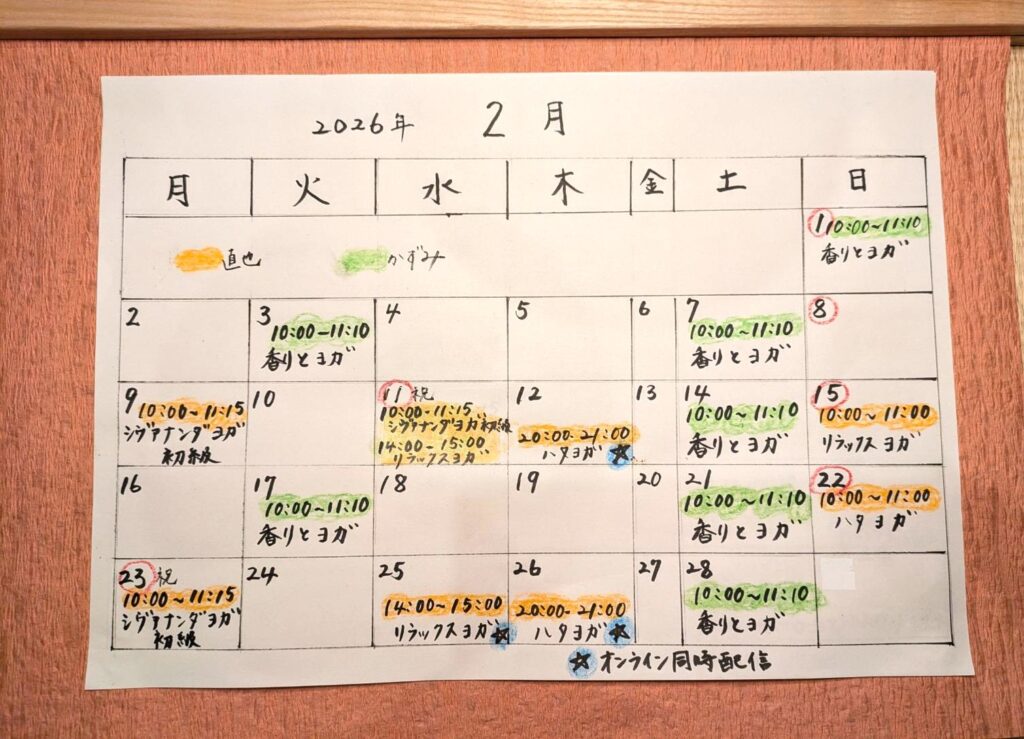 2026年 2月
月 火 水 木 金 土 日
1 10:00~11:10
香りとヨガ
直也 かずみ
2
3
10:00-11:10
香りとヨガ
4
5
6
7
10:00~11:10
香りとヨガ
8
9
10:00~11:15
シヴァナンダヨガ
初級
10
11 祝
10:00-11:15
シヴァナンダヨガ初級
14:00-15:00
リラックスヨガ
12
20:00-21:00
ハタヨガ☆
13
14
10:00~11:10
香りとヨガ
15
10:00~11:00
リラックスヨガ
16
17
10:00~11:10
香りとヨガ
18
19
20
21
10:00~11:10
香りとヨガ
22
10:00~11:00
ハタヨガ
23 祝
10:00~11:15
シヴァナンダヨガ
初級
24
25
14:00~15:00
リラックスヨガ☆
26
20:00-21:00
ハタヨガ☆
27
28
10:00~11:10
香りとヨガ
☆オンライン同時配信